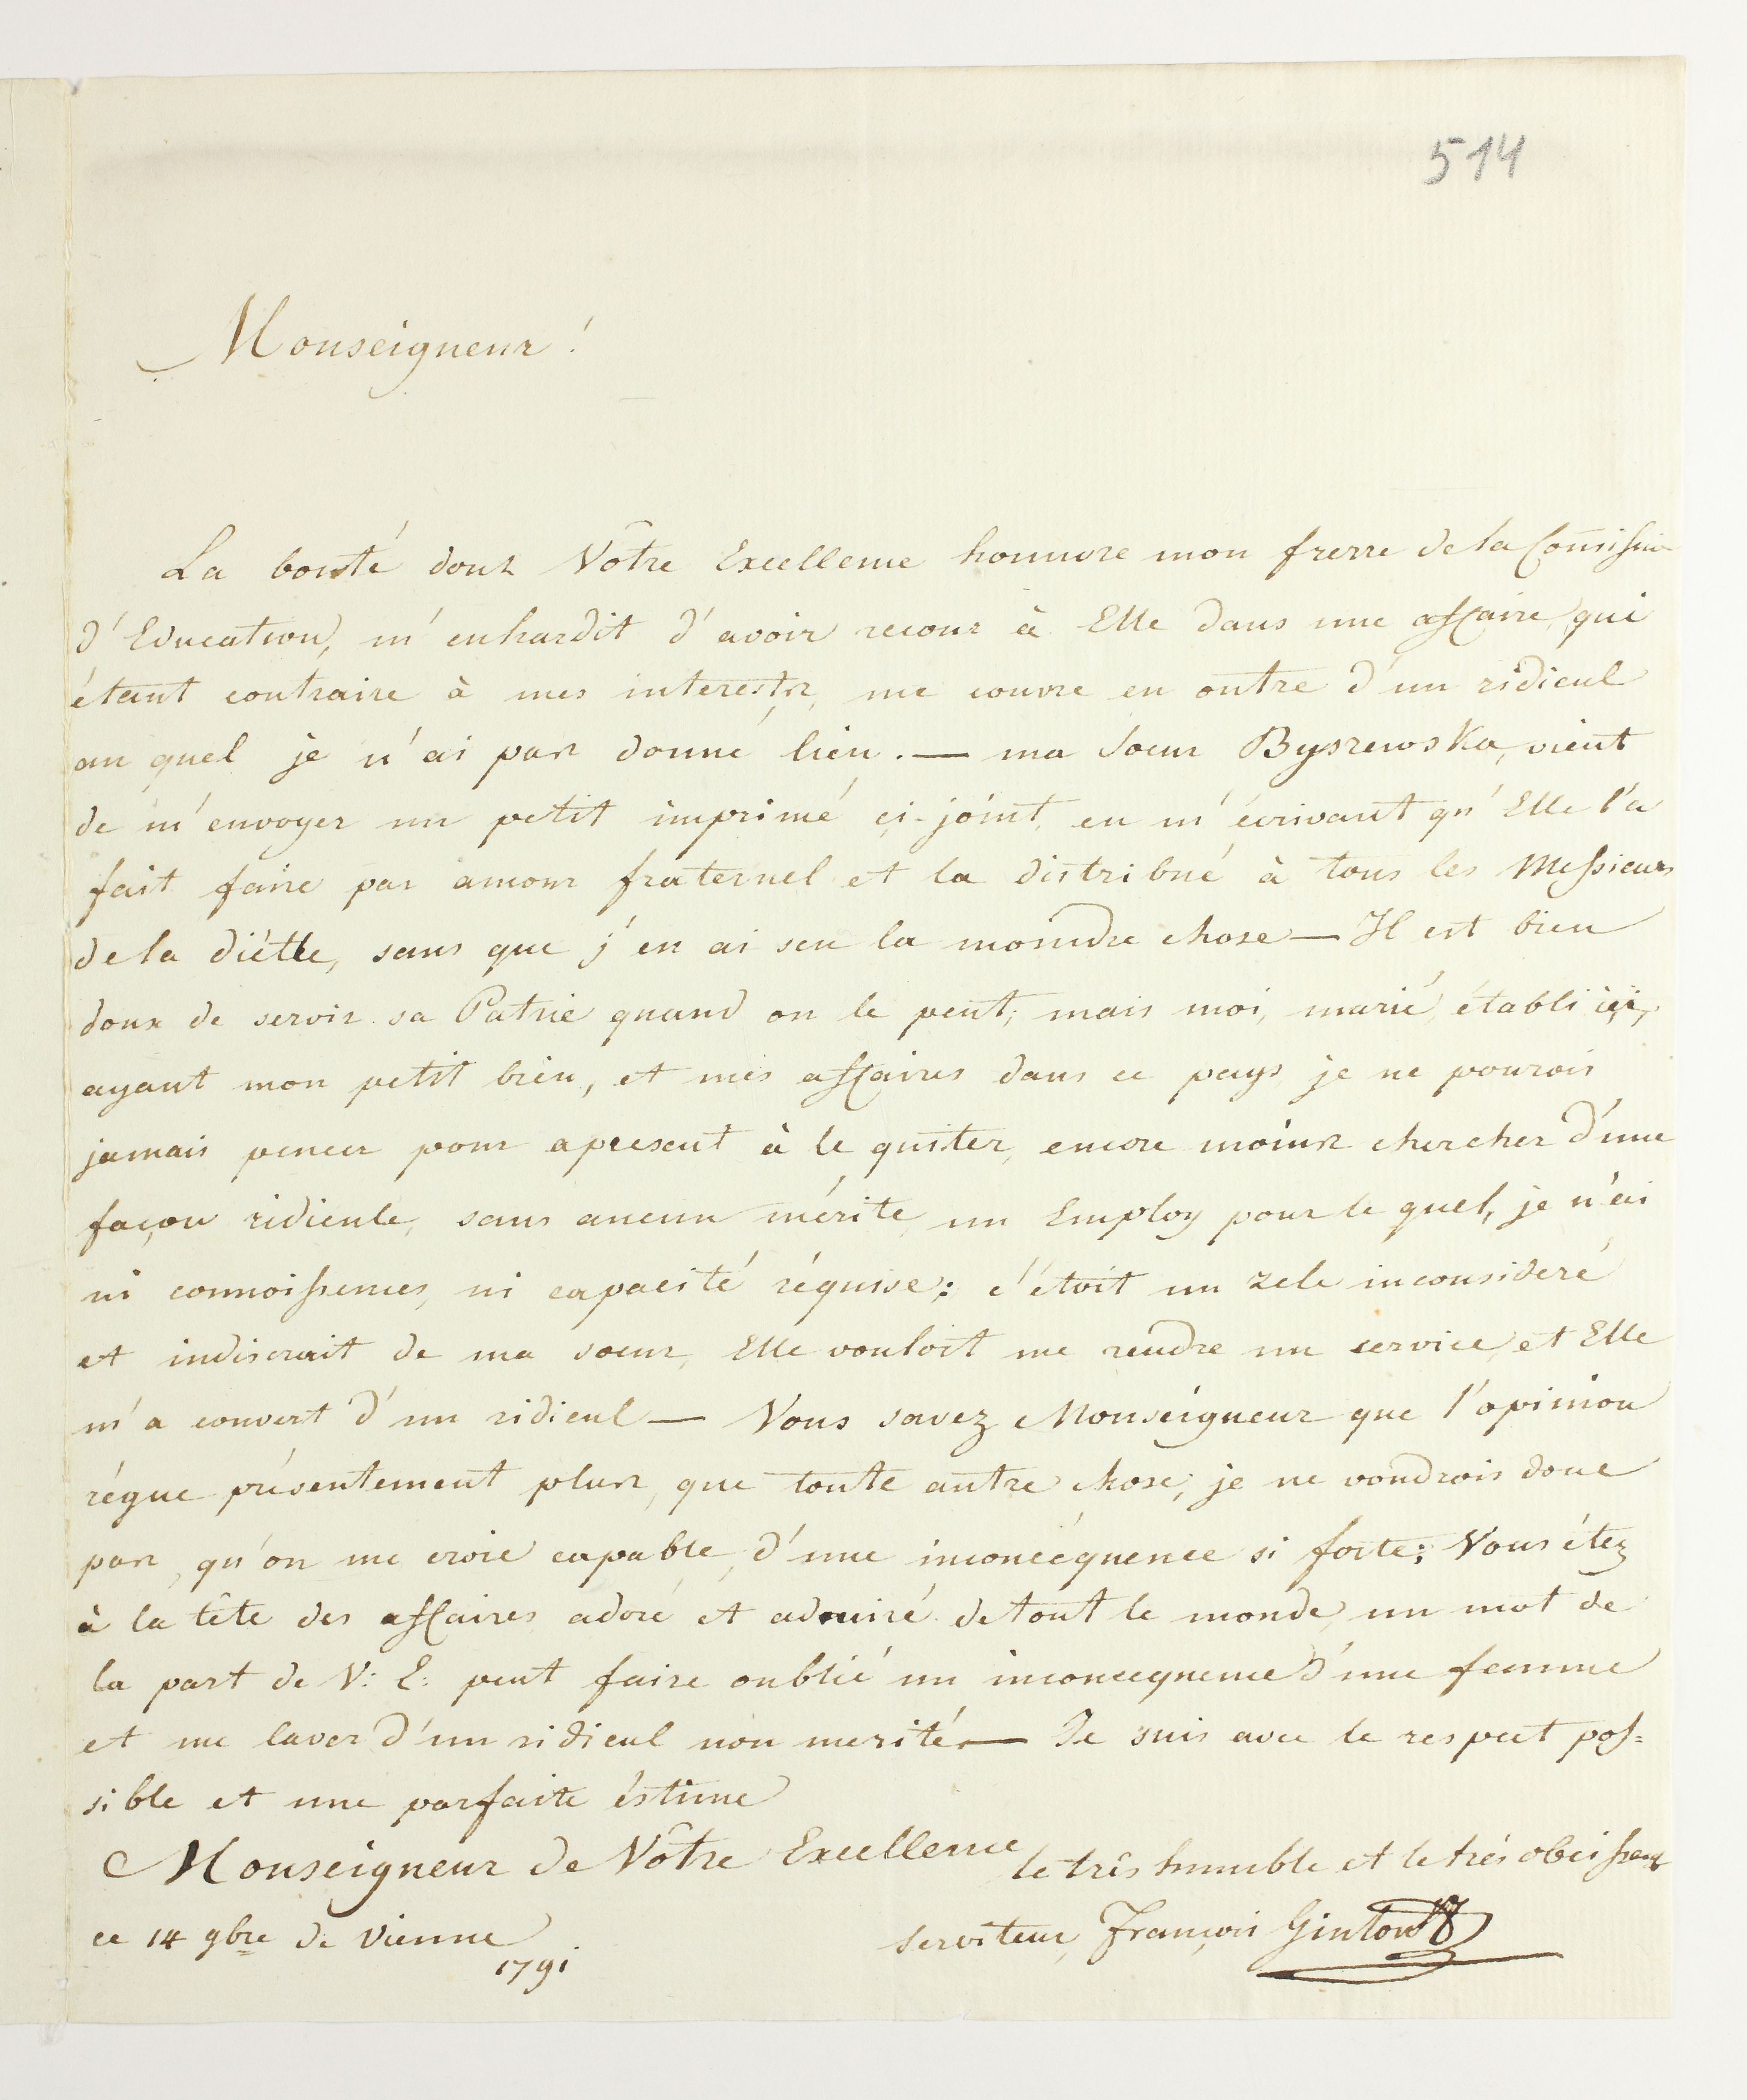 514
Monseigneur!
La bonté dont Vôtre Excellence honnore mon frerre de la Com̄ission
d'Education, m'enhardit d'avoir recour à Elle dans une affaire, qui
étant contraire à mes interests, me couvre en outre d'un ridicul
au quel je n'ai pas donné lieu. — ma Soeur Byszewska, vient
de m'envoyer un petit imprimé ci-joint, en m'écrivant qu'Elle l'a
fait faire par amour fraternel et la distribué à tous les Messieurs
de la diétte, sans que j'en ai seu la moindre chose — Il est bien
doux de servir sa Patrie quand on le peut; mais moi, marié, établi içi,
ayant mon petit bien, et mes affaires dans ce pays, je ne pourois
jamais pencer pour apresent à le quiter, encore moins chercher d'une
façon ridicule, sans aucun mérite, un Employ pour le quel, je n'ai
ni connoissences, ni capacité réquise; c'étoit un zele inconsideré
et indiscrait de ma soeur, Elle vouloit me rendre un service, et Elle
m'a couvert d'un ridicul — Vous savez Monseigneur que l'opinion
régne présentement plus, que toute autre chose, je ne voudrois donc
pas, qu'on me croie capable, d'une inconcéquence si forte; Vous étez
à la tête des affaires adoré et admiré de tout le monde, un mot de
la part de V: E: peut faire oublié un inconcequence d'une femme
et me laver d'un ridicul non merité. — Je suis avec le respect pos=
sible et une parfaite éstime
Monseigneur de Vôtre Excellence
le trés humble et le trés obeissent
serviteur, François Gintowtt
ce 14 9bre de Vienne
1791